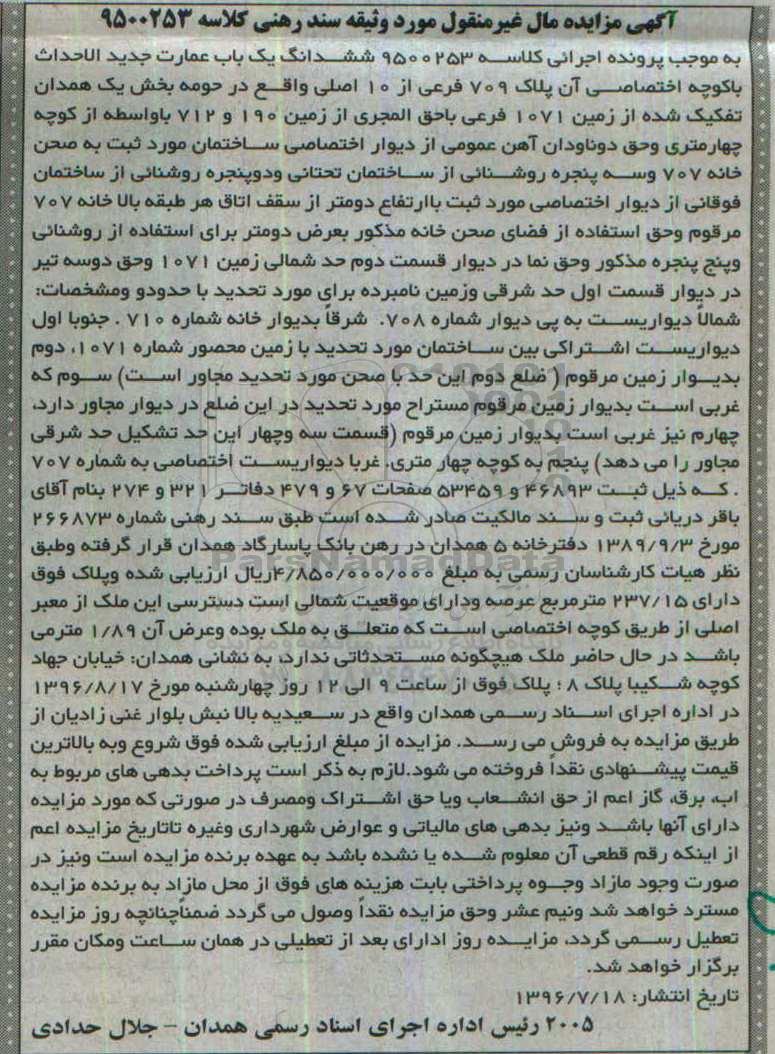 آگهی مزایده مال غیرمنقول مورد وثیقه سند رهنی کلاسه ۹۵۰۰۲۵۳
به موجب پرونده اجرائی کلاسه ۹۵۰۰۲۵۳ ششدانگ یک باب عمارت جدید الاحداث
باکوچه اختصاصی آن پلاک ۷۰۹ فرعی از ۱۰ اصلی واقع در حومه بخش یک همدان
تفکیک شده از زمین ۱۰۷۱ فرعی باحق المجری از زمین ۱۹۰ و ۷۱۲ باواسطه از کوچه
چهارمتری وحق دوناودان آهن عمومی از دیوار اختصاصی ساختمان مورد ثبت به صحن
خانه ۷۰۷ وسه پنجره روشنائی از ساختمان تحتانی ودوپنجره روشنائی از ساختمان
فوقانی از دیوار اختصاصی مورد ثبت باارتفاع دومتر از سقف اتاق هر طبقه بالا خانه ۷۰۷
مرقوم وحق استفاده از فضای صحن خانه مذکور بعرض دومتر برای استفاده از روشنائی
وپنج پنجره مذکور وحق نما در دیوار قسمت دوم حد شمالی زمین ۱۰۷۱ وحق دوسه تیر
در دیوار قسمت اول حد شرقی وزمین نامبرده برای مورد تحدید با حدودو ومشخصات:
شمالاً دیواریست به پی دیوار شماره ۷۰۸. شرقاً بدیوار خانه شماره ۷۱۰ . جنوبا اول
دیواریست اشتراکی بین ساختمان مورد تحدید با زمین محصور شماره ۱۰۷۱، دوم
بدیوار زمین مرقوم ( ضلع دوم این حد با صحن مورد تحدید مجاور است) سوم که
غربی است بدیوار زمین مرقوم مستراح مورد تحدید در این ضلع در دیوار مجاور دارد،
چهارم نیز غربی است بدیوار زمین مرقوم (قسمت سه وچهار این حد تشکیل حد شرقی
مجاور را می دهد) پنجم به کوچه چهار متری. غربا دیواریست اختصاصی به شماره ۷۰۷
. که ذیل ثبت ۴۶۸۹۳ و ۵۳۴۵۹ صفحات ۶۷ و ۴۷۹ دفاتر ۳۲۱ و ۲۷۴ بنام آقای
باقر دریائی ثبت و سند مالکیت صادر شده است طبق سند رهنی شماره ۲۶۶۸۷۳
مورخ ۱۳۸۹/۹/۳ دفترخانه ۵ همدان در رهن بانک پاسارگاد همدان قرار گرفته وطبق
نظر هیات کارشناسان رسمی به مبلغ ۴/۸۵۰/۰۰۰/۰۰۰ریال ارزیابی شده وپلاک فوق
دارای ۲۳۷/۱۵ مترمربع عرصه ودارای موقعیت شمالی است دسترسی این ملک از معبر
اصلی از طریق کوچه اختصاصی است که متعلق به ملک بوده وعرض آن ۱/۸۹ مترمی
باشد در حال حاضر ملک هیچگونه مستحدثاتی ندارد، به نشانی همدان: خیابان جهاد
کوچه شکیبا پلاک ۸ ؛ پلاک فوق از ساعت ۹ الی ۱۲ روز چهارشنبه مورخ ۱۳۹۶/۸/۱۷
در اداره اجرای اسناد رسمی همدان واقع در سعیدیه بالا نبش بلوار غنی زادیان از
طریق مزایده به فروش می رسد. مزایده از مبلغ ارزیابی شده فوق شروع وبه بالاترین
قیمت پیشنهادی نقداً فروخته می شود.لازم به ذکر است پرداخت بدهی های مربوط به
اب، برق، گاز اعم از حق انشعاب ویا حق اشتراک ومصرف در صورتی که مورد مزایده
دارای آنها باشد ونیز بدهی های مالیاتی و عوارض شهرداری وغیره تاتاریخ مزایده اعم
از اینکه رقم قطعی آن معلوم شده یا نشده باشد به عهده برنده مزایده است ونیز در
صورت وجود مازاد وجوه پرداختی بابت هزینه های فوق از محل مازاد به برنده مزایده
مسترد خواهد شد ونیم عشر وحق مزایده نقداً وصول می گردد ضمناًچنانچه روز مزایده
تعطیل رسمی گردد، مزایده روز ادارای بعد از تعطیلی در همان ساعت ومکان مقرر
برگزار خواهد شد.
تاریخ انتشار: ۱۳۹۶/۷/۱۸
۲۰۰۵ رئیس اداره اجرای اسناد رسمی همدان - جلال حدادی
ParsNamadData